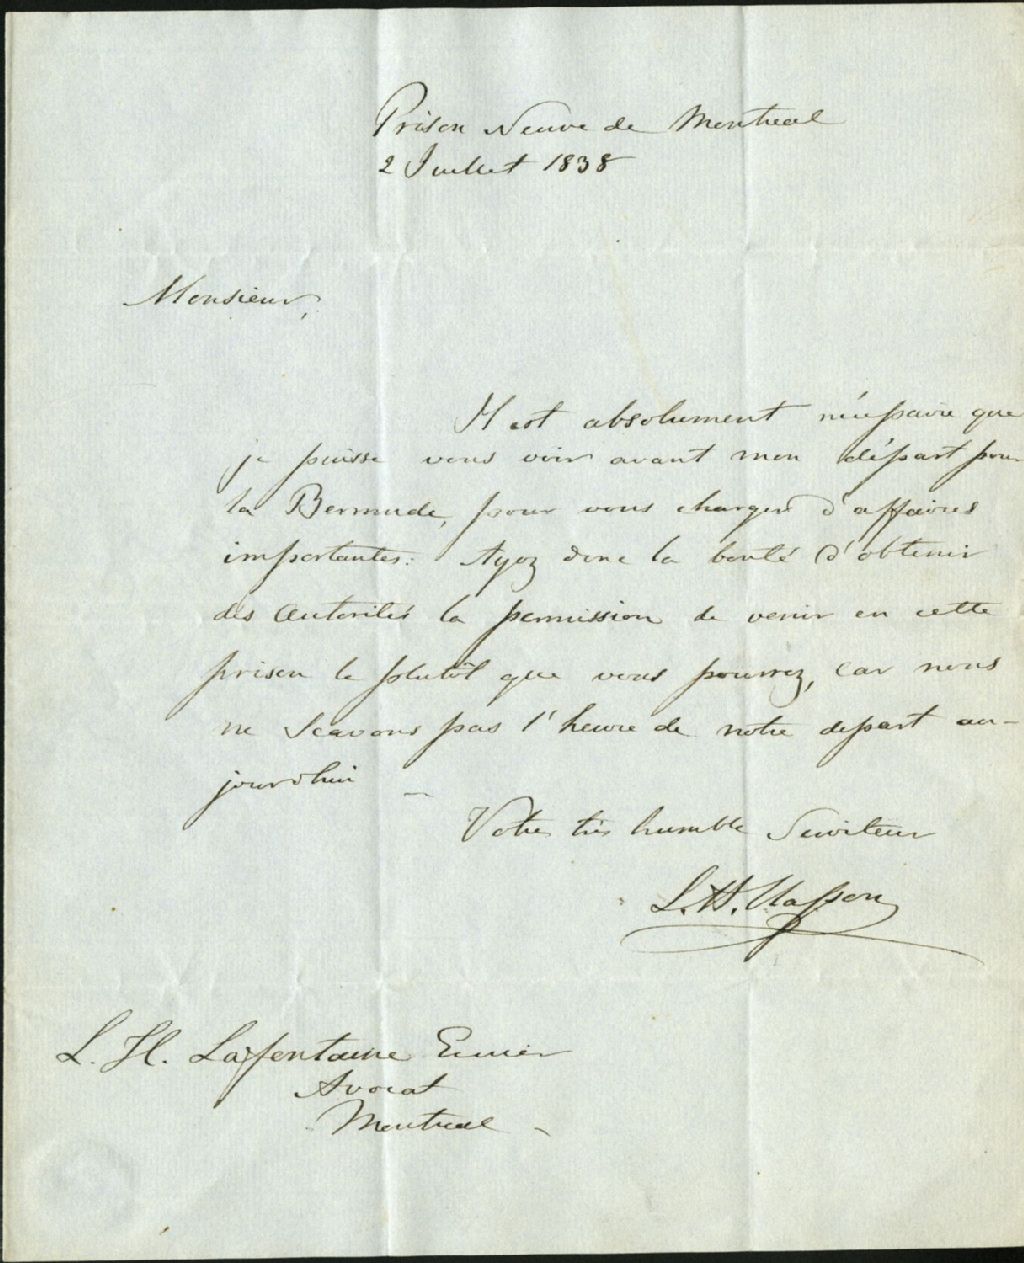 Prison Neuve de Montreal
2 Juillet 1838
Monsieur,
Il est absolument nécessaire que
je puisse vous voir avant mon départ pour
la Bermude, pour vous charger d'affaires
importantes. Ayez donc la bonté d'obtenir
des autorités la permission de venir en cette
prison le plutôt que vous pourrez, car nous
ne scavons pas l'heure de notre depart au-
jourdhui –
Votre très humble Serviteur
L. H. Masson
L. H. Lafontaine Ecuier
Avocat
Montreal –